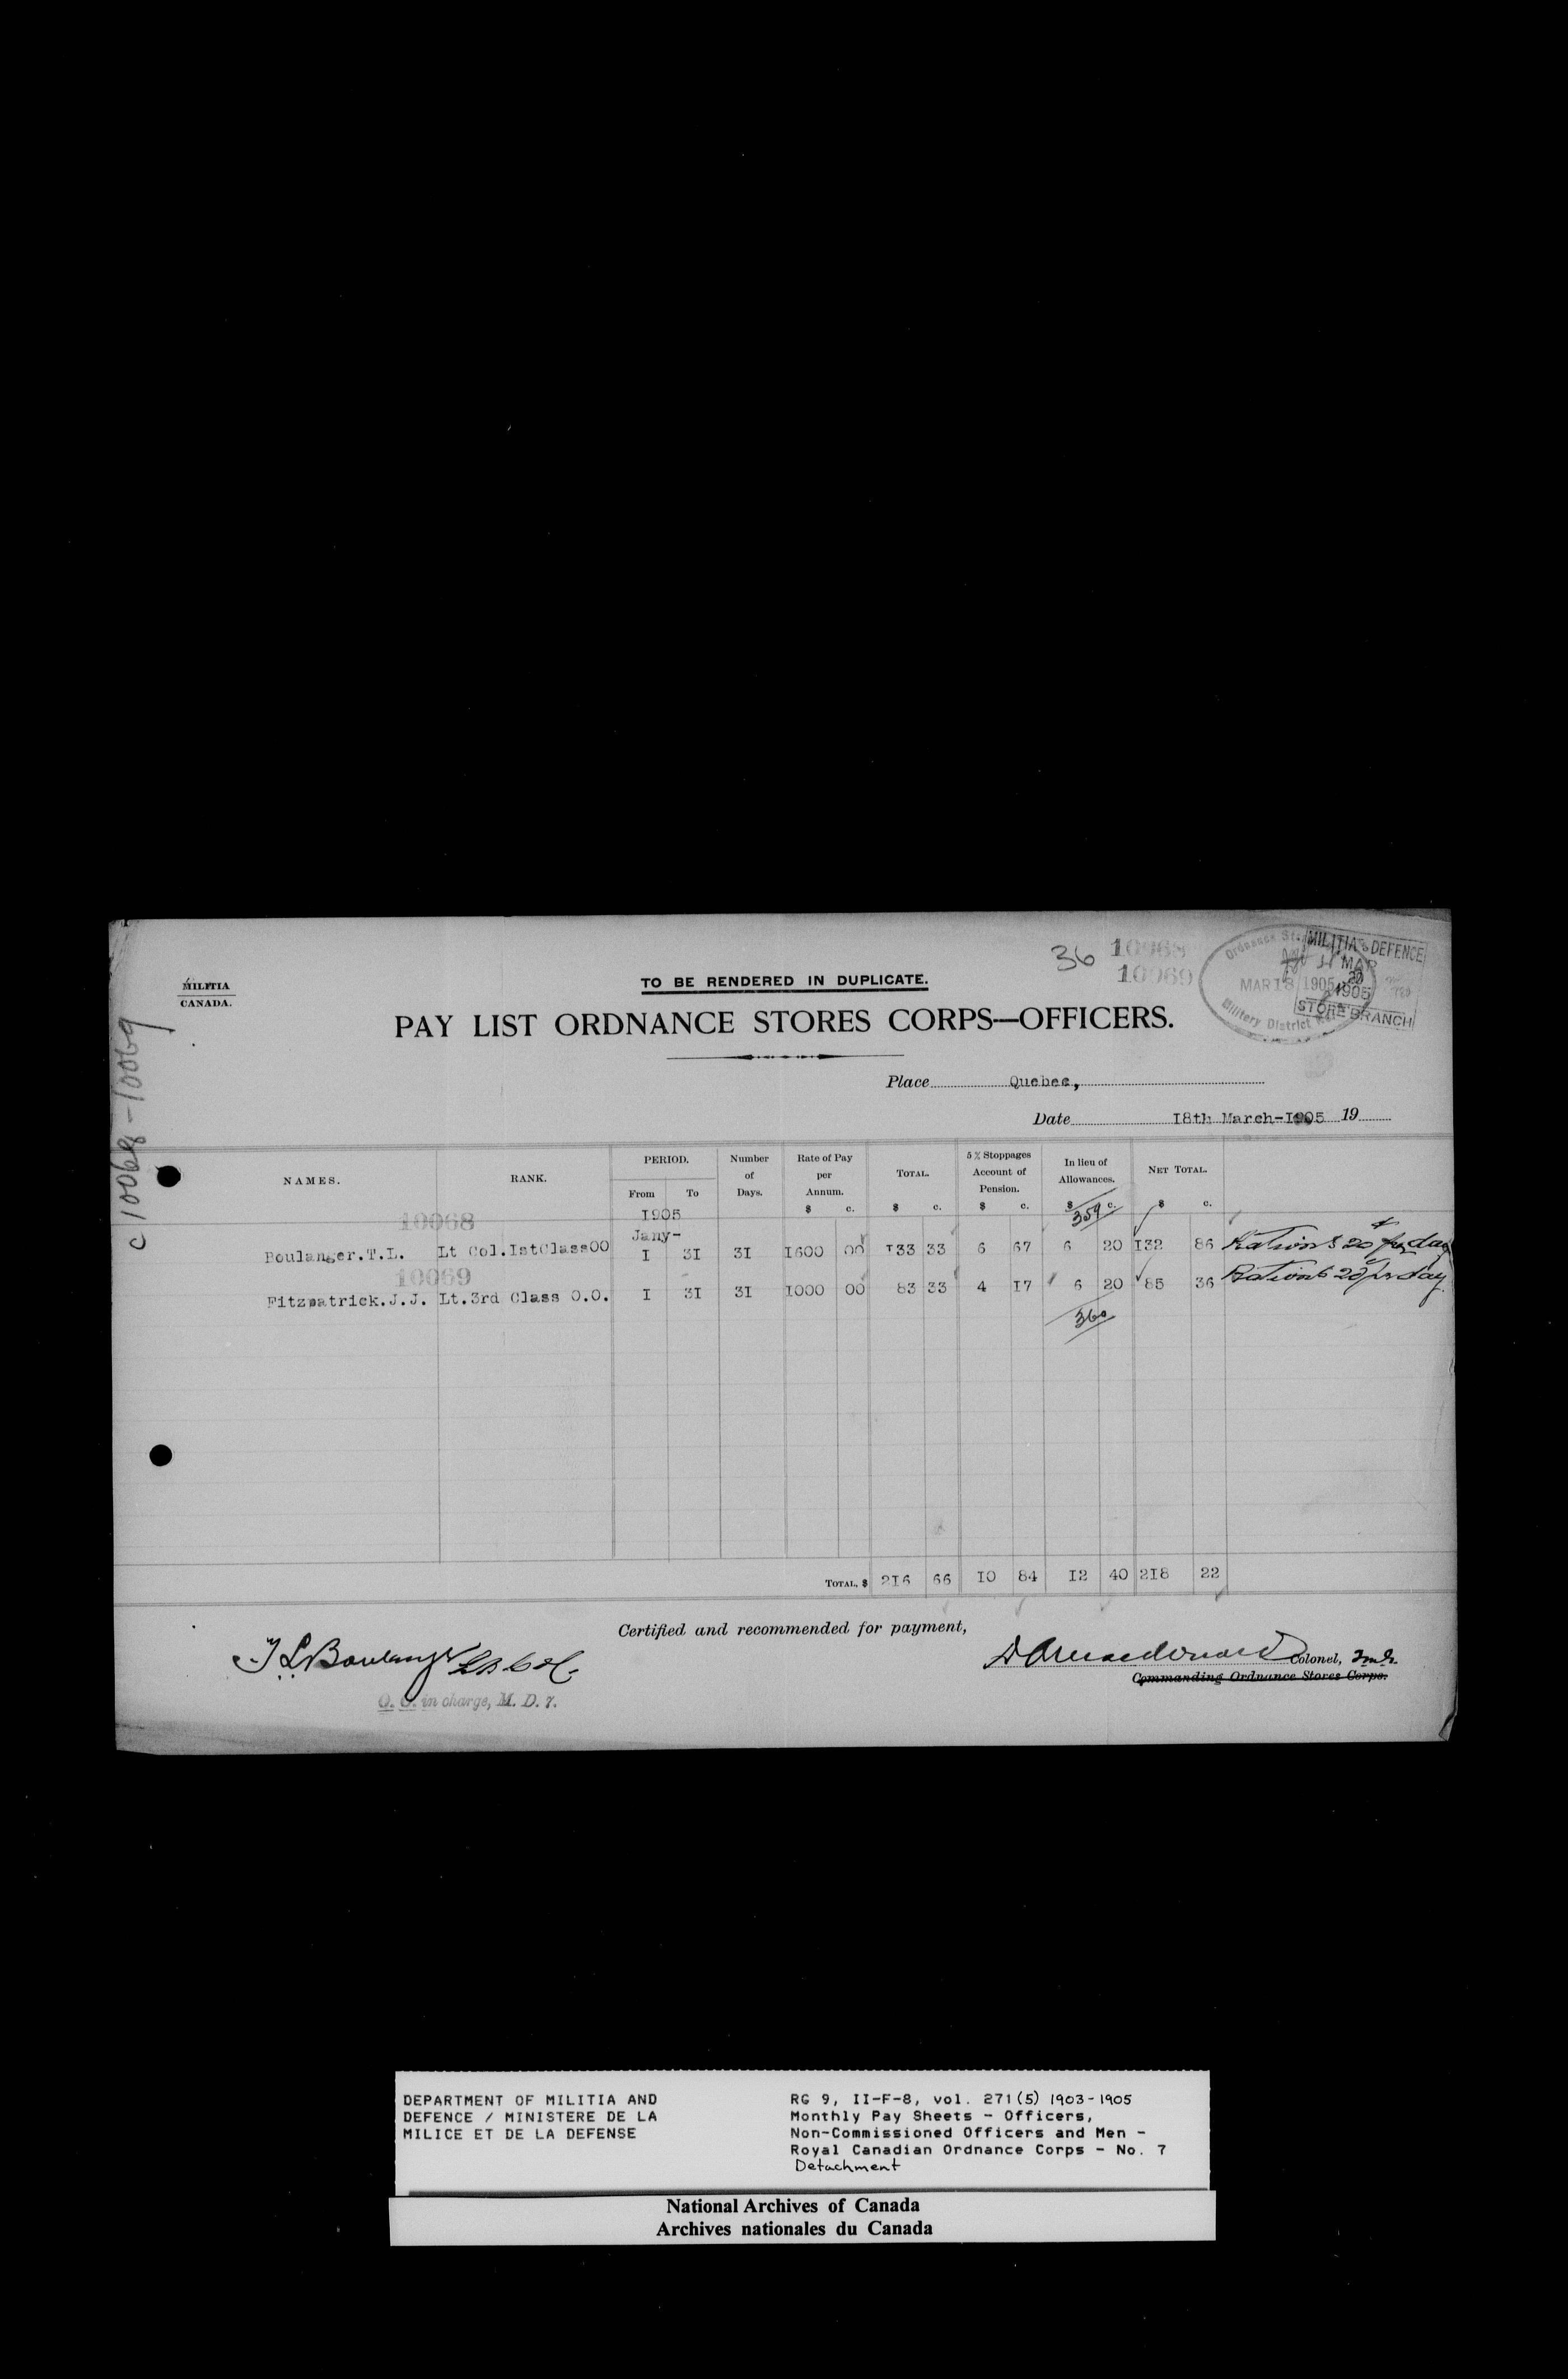 36 10068
10069
MILITIA
CANADA.
TO BE RENDERED IN DUPLICATE.
Ordnance
MILITIA & DEFENCE
MAR 18 1905
MAR
20
1905
STORE BRANCH
Military District
PAY LIST ORDNANCE STORES CORPS—OFFICERS.
Place Quebec,
Date I8th March-I905 19
C 10068-10069
NAMES. RANK. PERIOD. From To Number of Days. Rate of Pay per Annum. $ c. TOTAL. $ c. 5 % Stoppages Account of Pension. $ c. In lieu of Allowances. $ c. NET TOTAL. $ c.
I905
359
10068 Jany-
Boulanger.T.L. Lt Col.IstClassOO I 3I 3I I600 00 I33 33 6 67 6 20 I32 86 Rations 20 ¢ per day
10069
Fitzpatrick.J.J. Lt.3rd Class O.O. I 3I 3I I000 00 83 33 4 I7 6 20 85 36 Rations 20 ¢ per day
360
TOTAL, $ 2I6 66 I0 84 I2 40 2I8 22
Certified and recommended for payment,
T L Boulanger Lt Col.
O. O. in charge, M. D. 7.
D A Macdonald Colonel,
Commanding Ordnance Stores Corps.
DEPARTMENT OF MILITIA AND
DEFENCE / MINISTERE DE LA
MILICE ET DE LA DEFENSE
RG 9, II-F-8, vol. 271(5) 1903-1905
Monthly Pay Sheets - Officers,
Non-Commissioned Officers and Men -
Royal Canadian Ordnance Corps - No. 7
Detachment
National Archives of Canada
Archives nationales du Canada